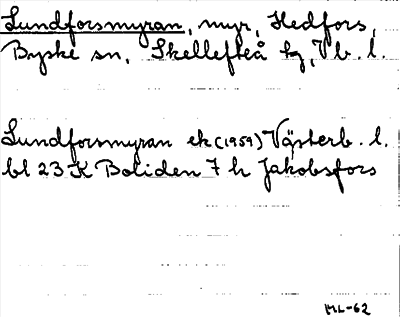 Lundforsmyran, myr, Hedfors,
Byske sn, Skellefteå tg, Vb. l.
Lundforsmyran ek (1959) Västerb. l.
bl 23 K Boliden 7 h Jakobsfors
ML-62